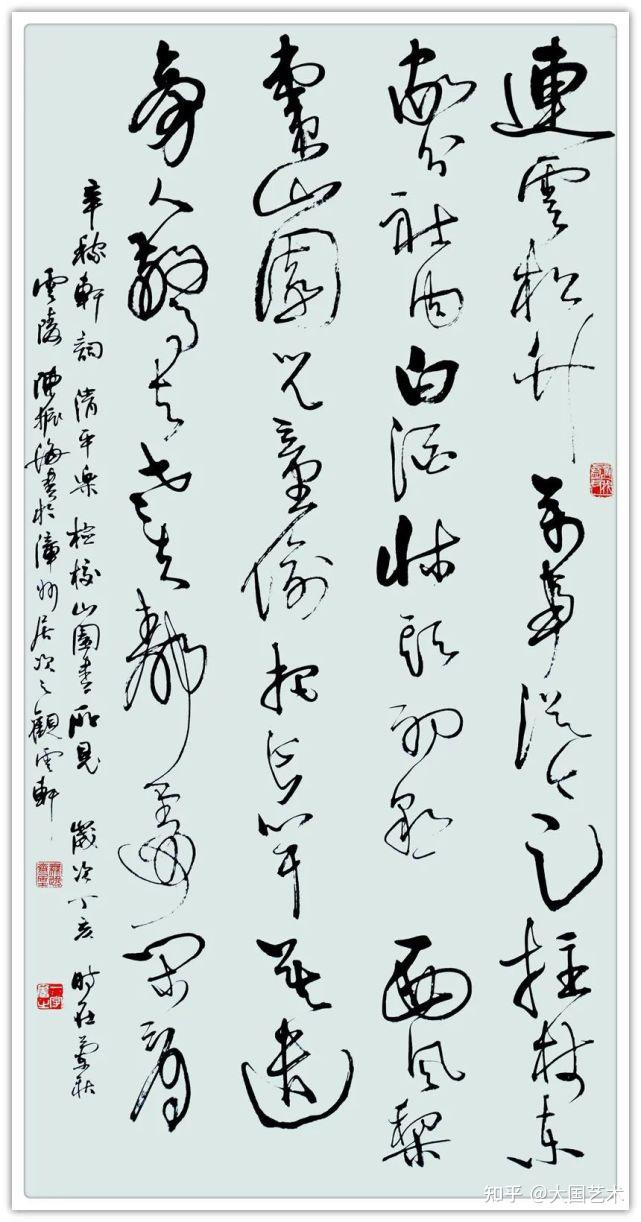 連雲松竹萬事從今足拄杖東
家分社肉白酒牀頭初熟西風梨
棗山園兒童偷把長竿莫遣
旁人驚去老夫靜處閑看
辛稼軒詞清平樂檢校山園書所見歲次丁亥時在蘭秋
雲陵陳振海書於漳州居次之觀雲軒
知乎 @大国艺术